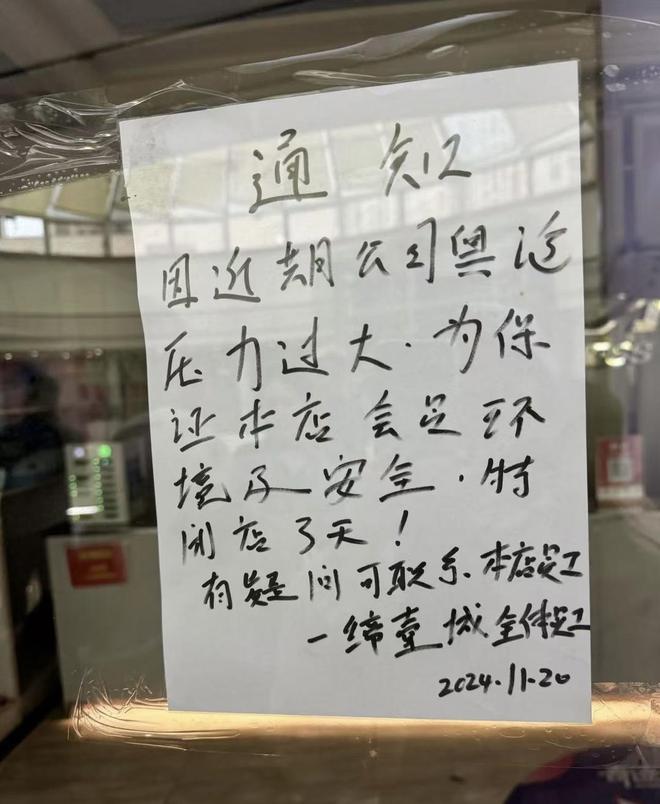 通知
因近期公司舆论
压力过大.为保
证本店会员环
境及安全.特
闭店3天!
有疑问可联系.本店员工
一缔壹城全体员工
2024.11.20